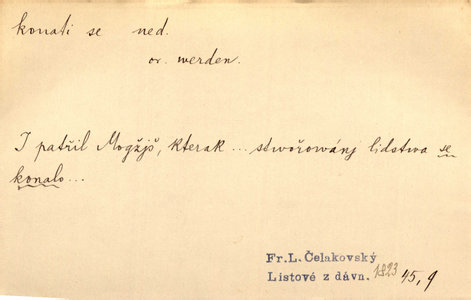 konati se ned.
or. werden.
I patřil Mogžjš, kterak ... stwořowánj lidstwa se
konalo...
Fr. L. Čelakovský
Listové z dávn. 1823 45, 9